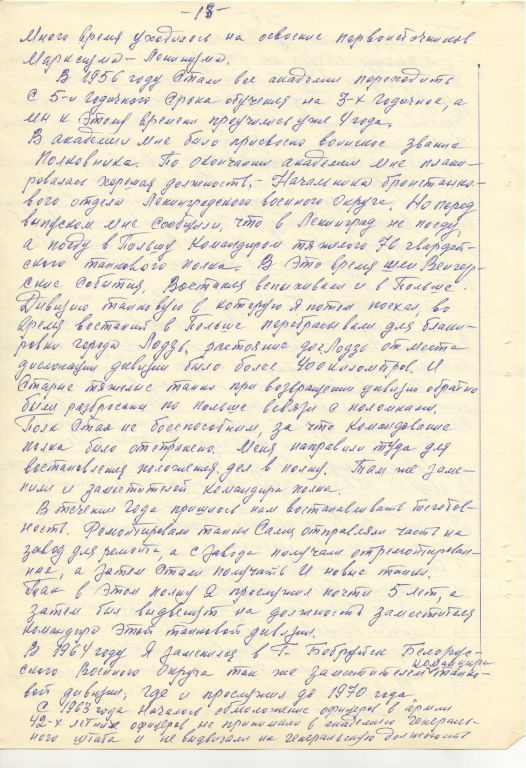 -18-
Много время уходилось на освоение первоисточников
Марксизма-Ленинизма.
В 1956 году стали все академии переходить
с 5-и годичного срока обучения на 3-х годичное, а
мы к этому времени проучились уже 4 года.
В академии мне было присвоено воинское звание
Полковника. По окончании академии мне плани-
ровалась хорошая должность,- Начальника бронетанко-
вого отдела Ленинградского военного Округа. Но перед
выпуском мне сообщили, что в Ленинград не поеду,
а поеду в Польшу командиром тяжелого 76 гвардей-
ского танкового полка. В это время шли Венгер-
ские события, Востания вспыхивали и в Польше.
Дивизию танковую в которую я потом поехал, во
время востаний в Польше перебрасывали для блоки-
ровки города Лодзь, растояние до г. Лодзь от места
дислокации дивизии было более 400 километров. И
старые тяжелые танки при возвращении дивизии обратно
были разбросаны по Польше всвязи с поломками.
Полк стал не боеспособным, за что командование
полка было отстранено. Меня направили туда для
востановления положения дел в полку. Там же заме-
нили и заместителей командира полка.
В течении года пришлось нам востанавливать боеготов-
ность. Ремонтировали танки Сами, отправляли часть на
завод для ремонта, а с завода получали отремонтирован-
ные, а затем стали получать и новые танки.
Так в этом полку я прослужил почти 5 лет, а
затем был выдвинут на должность заместителя
командира этой танковой дивизии.
В 1964 году я заменился в г. Бобруйск Белорус-
ского Военного Округа так же заместителем командира танко-
вой дивизии, где и прослужил до 1970 года.
С 1963 года началось обмоложение офицеров в армии
42-х летних офицеров не принимали в академию генераль-
ного штаба и не выдвигали на генеральскую должность